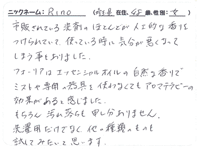 ニックネーム：Rino 在住 48歳,性別：女
市販されている洗剤のほとんどが人工的な香りを
つけられていて、使っている時に気分が悪くなって
しまう事もありました。
フォーリアはエッセンシャルオイルの自然な香りで
ミストや専用の器具を使わなくてもアロマテラピーの
効果があると感じました。
もちろん汚れ落ちも申し分ありません。
洗濯用だけでなく他の種類のものも
試してみたいと思います。